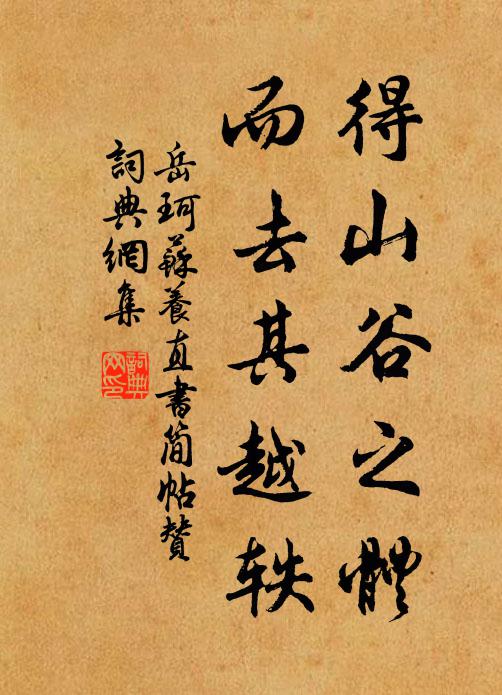 得山谷之體
而去其越軼
岳珂蘇養直書簡帖贊
詞典網集
詞典網印